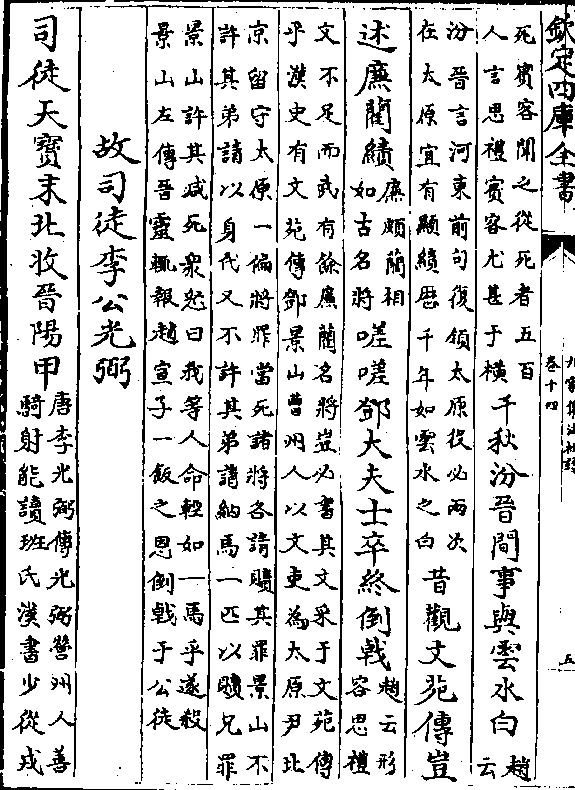 欽定四庫全書
九家集注杜詩
卷十四
五
死賓客聞之從死者五百
人言思禮賓客尤甚于橫
千秋汾晉間事與雲水白
趙
云
汾晉言河東前句復領太原役必兩次
在太原宜有顯績厯千年如雲水之白
昔觀文苑傳豈
述廉藺績
廉頗藺相
如古名將
嗟嗟鄧大夫士卒終倒戟
趙云形
容思禮
文不足而武有餘廉藺名將豈必書其文采于文苑傳
乎漢史有文苑傳鄧景山曹州人以文吏為太原尹北
京留守太原一偏將罪當死諸將各請贖其罪景山不
許其弟請以身代又不許其弟請納馬一匹以贖兄罪
景山許其減死衆怒曰我等人命輕如一馬乎遂殺
景山左傳晉靈輒報趙宣子一飯之恩倒戟于公徒
故司徒李公光弼
司徒天寶末北收晉陽甲
唐李光弼傳光弼營州人善
騎射能讀班氏漢書少從戎